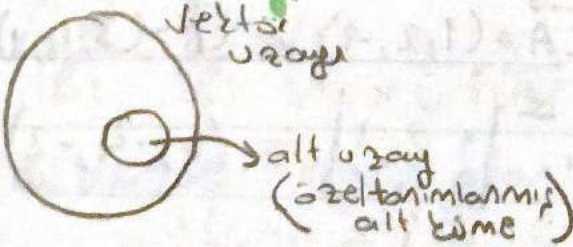 vektör
uzayı
alt uzay
(özel tanımlanmış
alt küme)